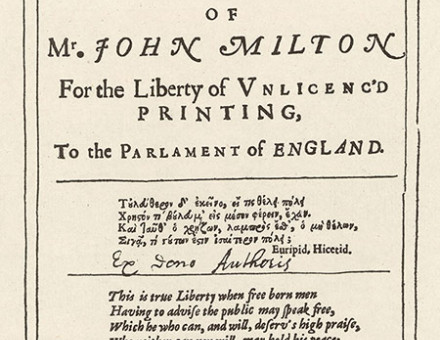 OF
Mr. JOHN MILTON
For the Liberty of VNLICENC'D
PRINTING,
To the PARLAMENT of ENGLAND.
Τοὐλεύθερον δ' ἐκεῖνο, εἴ τις θέλει πόλει
Χρηστόν τι βούλευμ' εἰς μέσον φέρειν, ἔχων.
Καὶ ταῦθ' ὁ χρῄζων, λαμπρός ἐσθ', ὁ μὴ θέλων,
Σιγᾷ, τί τούτων ἔστιν ἰσαίτερον πόλει;
Euripid. Hicetid.
Ex Dono Authoris
This is true Liberty when free born men
Having to advise the public may speak free,
Which he who can, and will, deserv's high praise,
Who neither can nor will, may hold his peace,